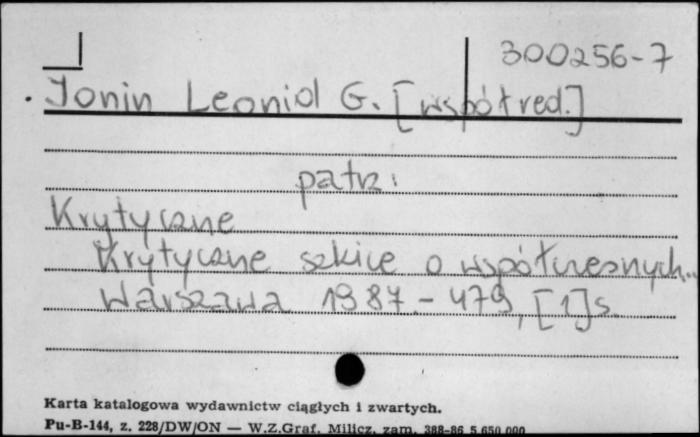 300256-7
Jonin Leonid G. [współred.]
patrz:
Krytyczne
Krytyczne szkice o współczesnych...
Warszawa 1987.- 479, [1]s.
Karta katalogowa wydawnictw ciągłych i zwartych.
Pu-B-144, z. 228/DW/ON — W.Z.Graf. Milicz, zam. 388-86 5.650.000